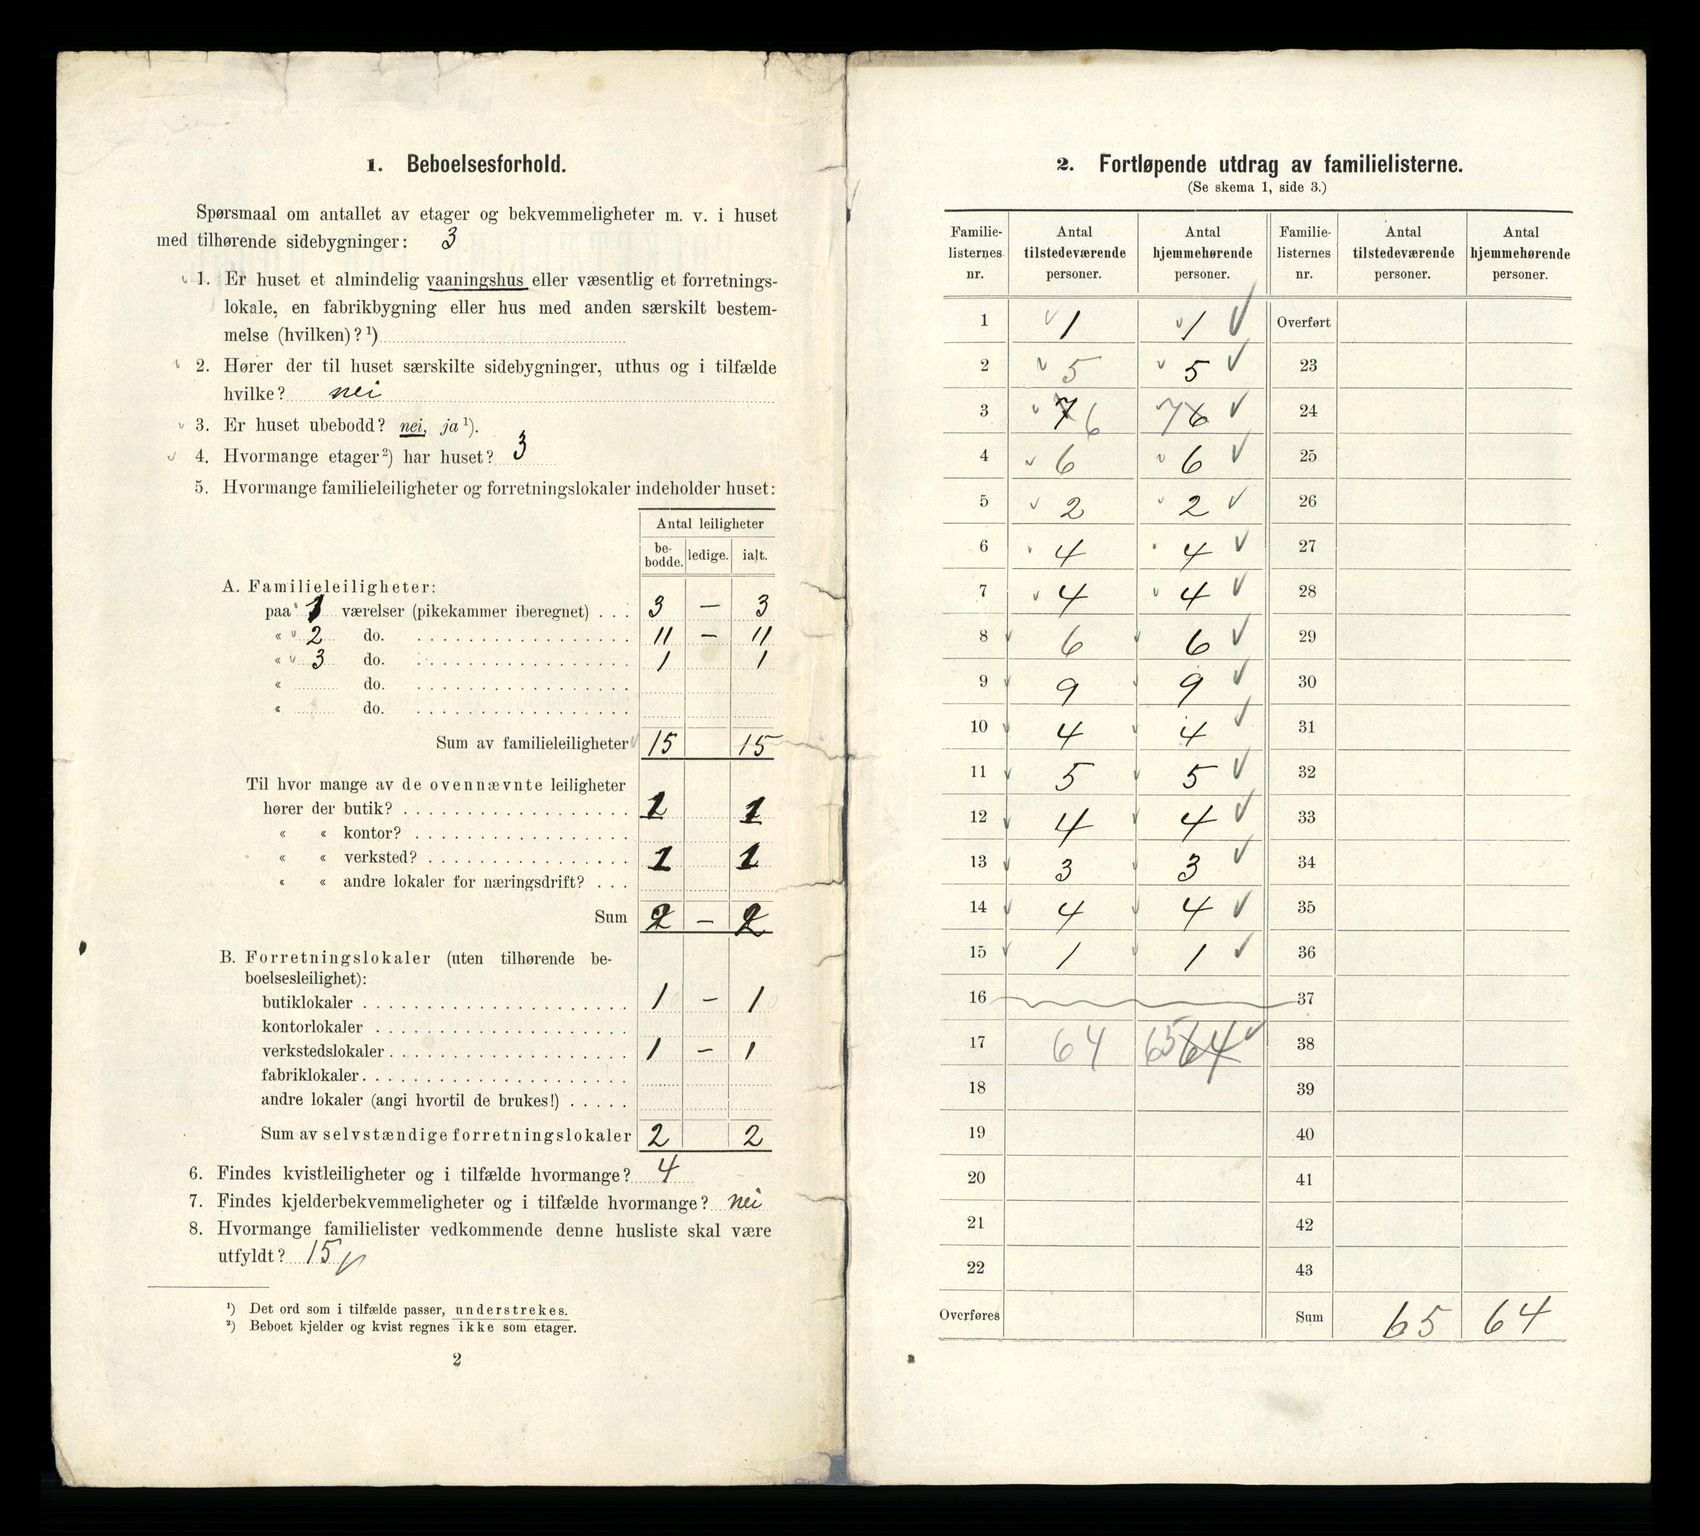 1. Beboelsesforhold.
Spørsmaal om antallet av etager og bekvemmeligheter m. v. i huset
med tilhørende sidebygninger: 3
1. Er huset et almindelig vaaningshus eller væsentlig et forretnings-
lokale, en fabrikbygning eller hus med anden særskilt bestem-
melse (hvilken)? ¹)
2. Hører der til huset særskilte sidebygninger, uthus og i tilfælde
hvilke? nei
3. Er huset ubebodd? nei, ja ¹).
4. Hvormange etager ²) har huset? 3
5. Hvormange familieleiligheter og forretningslokaler indeholder huset:
Antal leiligheter
be-
bodde. ledige. ialt.
A. Familieleiligheter:
paa 1 værelser (pikekammer iberegnet) . . . 3 — 3
« 2 do. 11 — 11
« 3 do. 1 1
« do.
« do.
Sum av familieleiligheter 15 15
Til hvor mange av de ovennævnte leiligheter
hører der butik? 1 1
« « kontor?
« « verksted? 1 1
« « andre lokaler for næringsdrift? . . .
Sum 2 — 2
B. Forretningslokaler (uten tilhørende be-
boelsesleilighet):
butiklokaler 1 — 1
kontorlokaler
verkstedslokaler 1 — 1
fabriklokaler
andre lokaler (angi hvortil de brukes!)
Sum av selvstændige forretningslokaler 2 2
6. Findes kvistleiligheter og i tilfælde hvormange? 4
7. Findes kjelderbekvemmeligheter og i tilfælde hvormange? nei
8. Hvormange familielister vedkommende denne husliste skal være
utfyldt? 15
¹) Det ord som i tilfælde passer, understrekes.
²) Beboet kjelder og kvist regnes ikke som etager.
2
2. Fortløpende utdrag av familielisterne.
(Se skema 1, side 3.)
Familie- Antal Antal Familie- Antal Antal
listernes tilstedeværende hjemmehørende listernes tilstedeværende hjemmehørende
nr. personer. personer. nr. personer. personer.
1 1 1 Overført
2 5 5 23
3 7 6 7 6 24
4 6 6 25
5 2 2 26
6 4 4 27
7 4 4 28
8 6 6 29
9 9 9 30
10 4 4 31
11 5 5 32
12 4 4 33
13 3 3 34
14 4 4 35
15 1 1 36
16 37
17 64 65 64 38
18 39
19 40
20 41
21 42
22 43
Overføres Sum 65 64